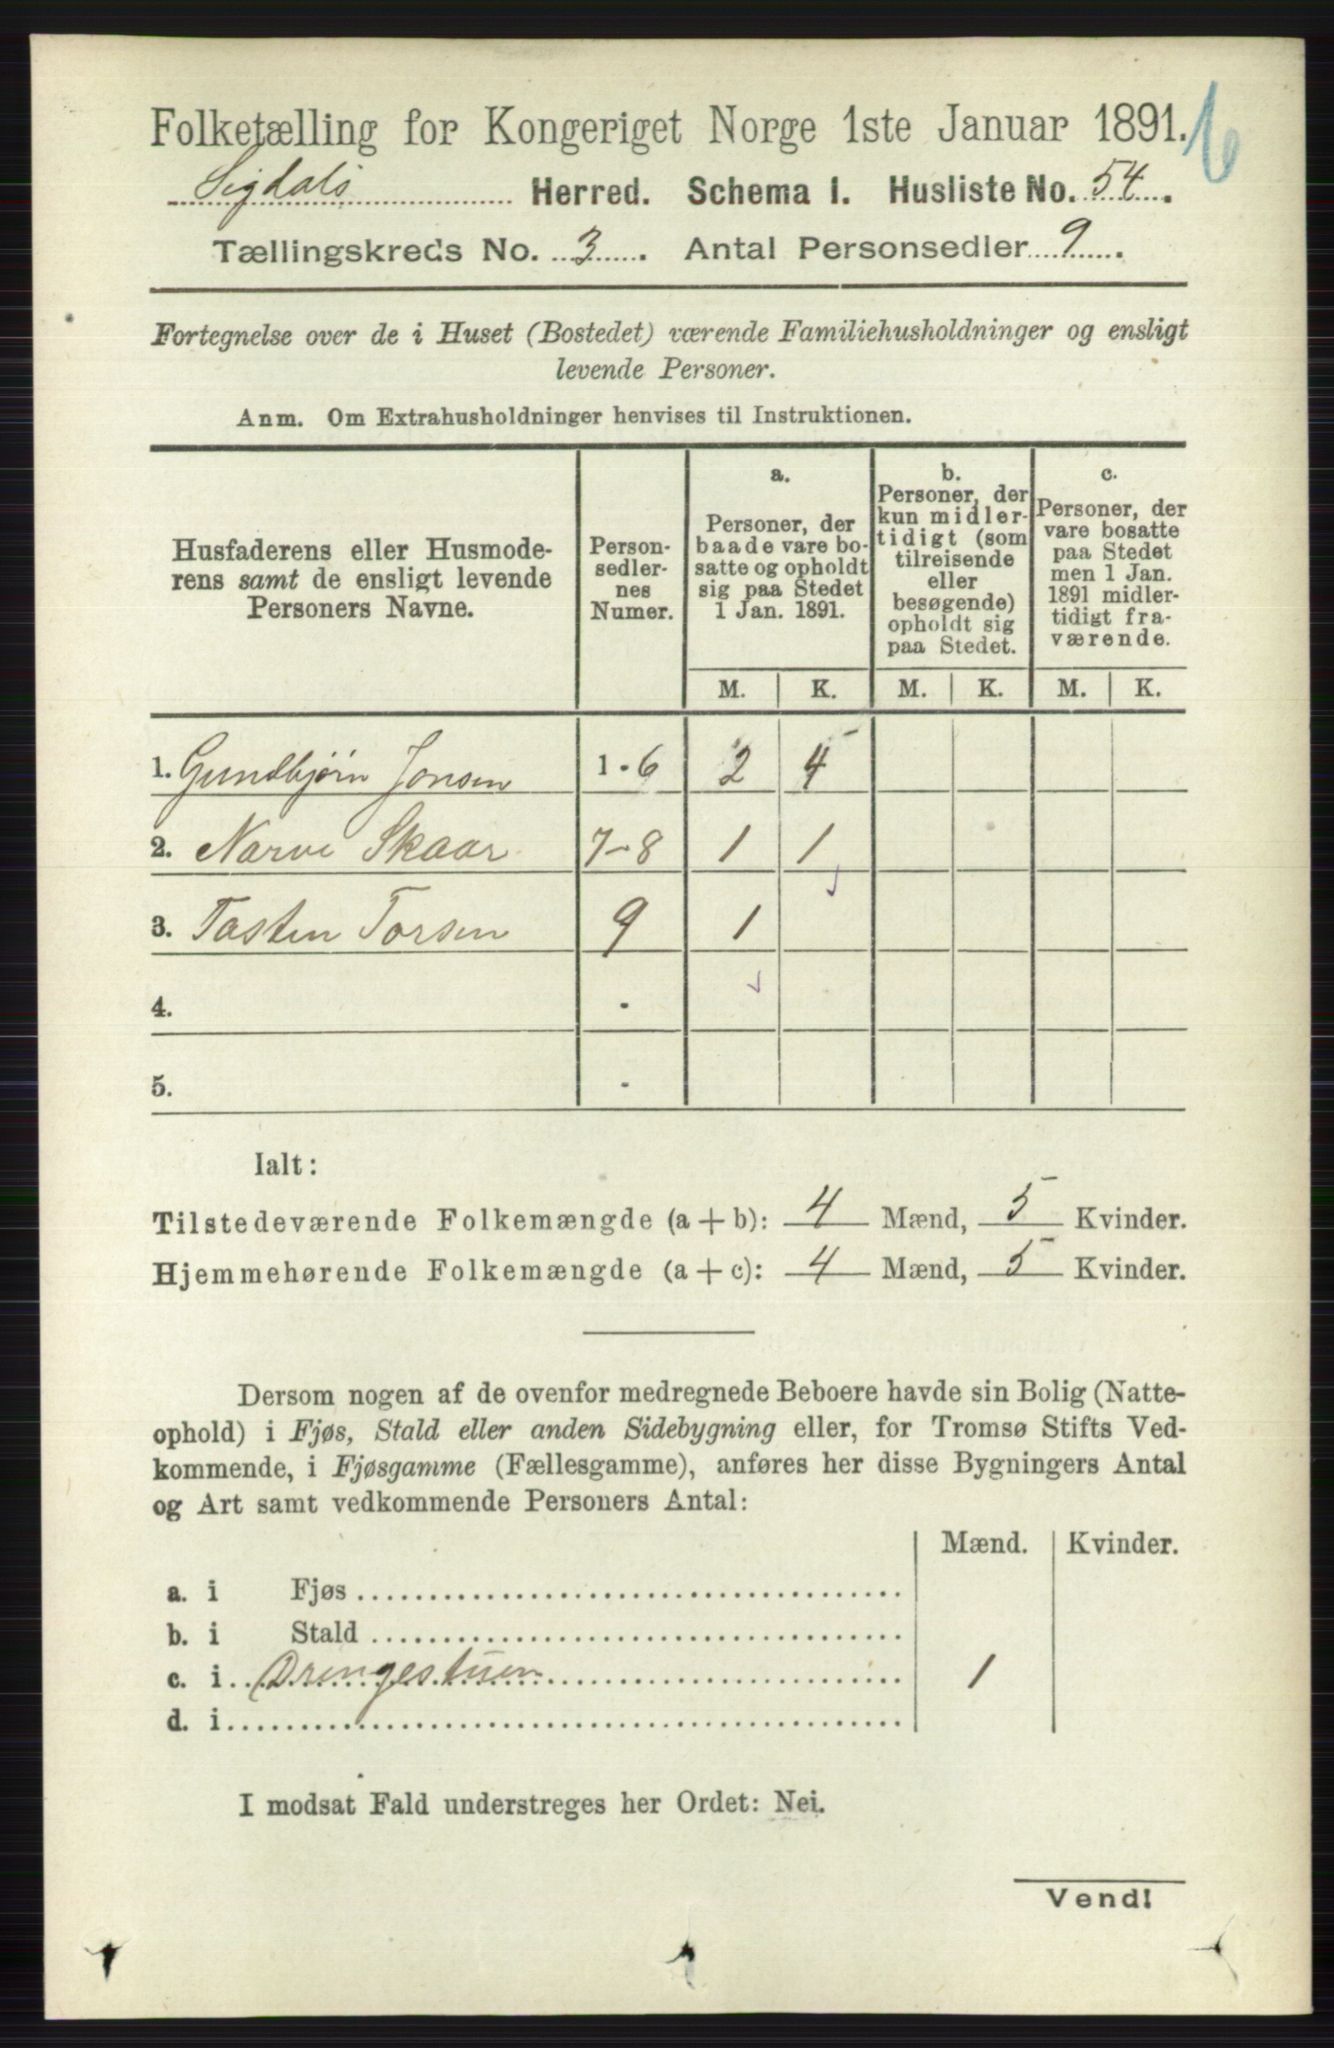 Folketælling for Kongeriget Norge 1ste Januar 1891.
6
Sigdals Herred. Schema 1. Husliste No. 54.
Tællingskreds No. 3. Antal Personsedler 9.
Fortegnelse over de i Huset (Bostedet) værende Familiehusholdninger og ensligt
levende Personer.
Anm. Om Extrahusholdninger henvises til Instruktionen.
Husfaderens eller Husmode-
rens samt de ensligt levende
Personers Navne.
Person-
sedler-
nes
Numer.
a.
Personer, der
baade vare bo-
satte og opholdt
sig paa Stedet
1 Jan. 1891.
b.
Personer, der
kun midler-
tidigt (som
tilreisende
eller
besøgende)
opholdt sig
paa Stedet.
c.
Personer, der
vare bosatte
paa Stedet
men 1 Jan.
1891 midler-
tidigt fra-
værende.
M. K. M. K. M. K.
1. Gundbjørn Jonsen 1-6 2 4
2. Narve Skaar 7-8 1 1
3. Tosten Torsen 9 1
4. -
5. -
Ialt:
Tilstedeværende Folkemængde (a + b): 4 Mænd, 5 Kvinder.
Hjemmehørende Folkemængde (a + c): 4 Mænd, 5 Kvinder.
Dersom nogen af de ovenfor medregnede Beboere havde sin Bolig (Natte-
ophold) i Fjøs, Stald eller anden Sidebygning eller, for Tromsø Stifts Ved-
kommende, i Fjøsgamme (Fællesgamme), anføres her disse Bygningers Antal
og Art samt vedkommende Personers Antal:
Mænd. Kvinder.
a. i Fjøs
b. i Stald
c. i Drengestuen 1
d. i
I modsat Fald understreges her Ordet: Nei.
Vend!